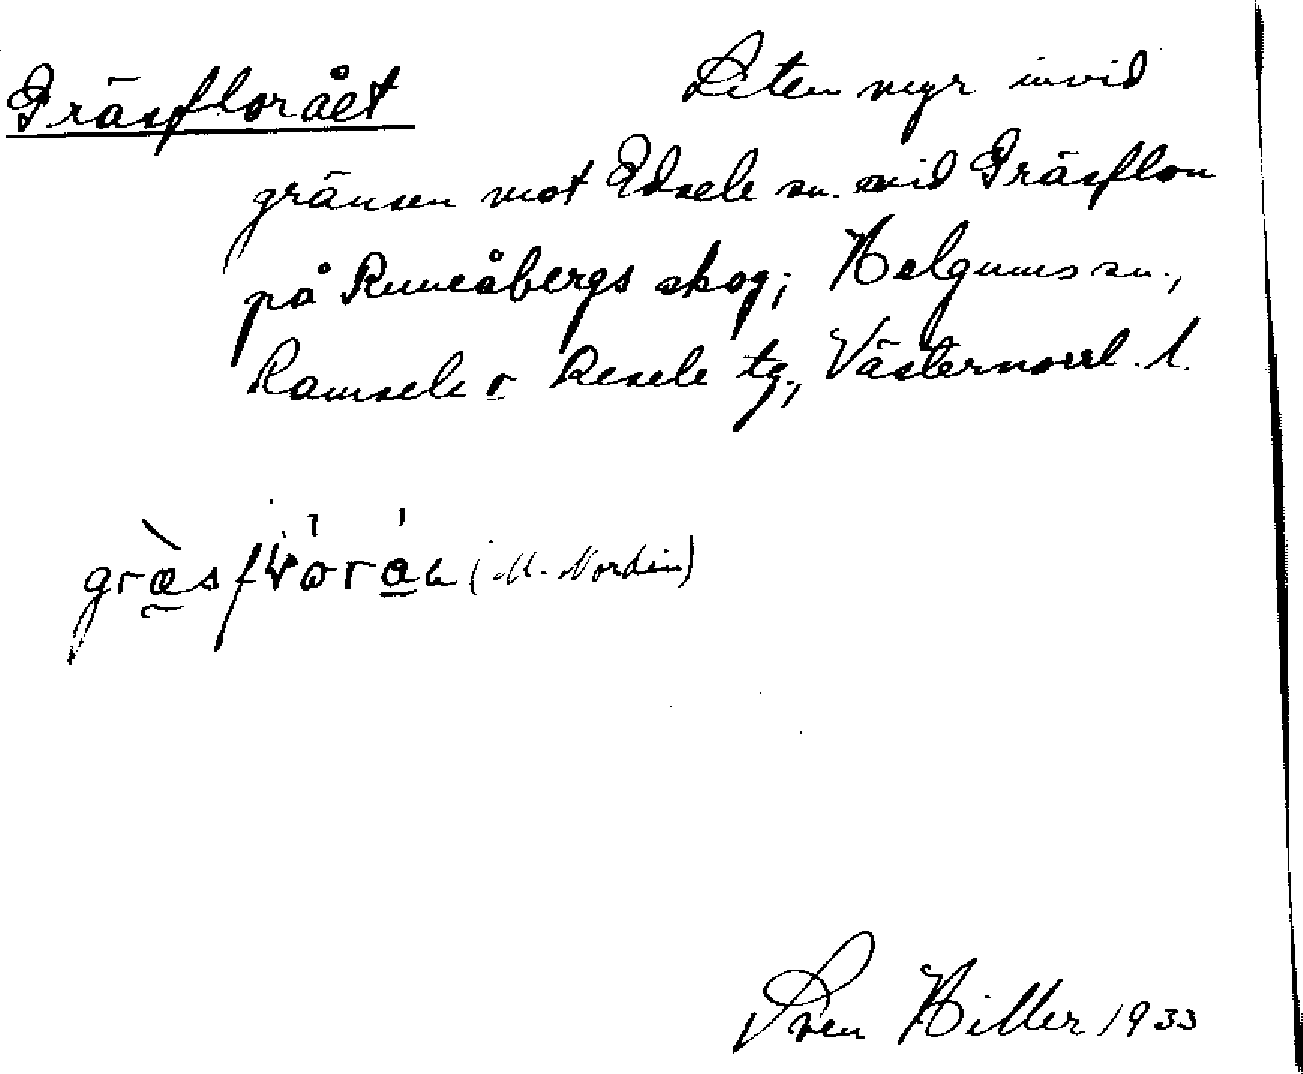 Gräsflorået Liten myr invid
gränsen mot Edsele sn. vid Gräsflon
på Runeåbergs skog; Helgums sn.,
Ramsele o Resele tg., Västernorrl. l.
(M. Nordin)
Sven Hiller 1933